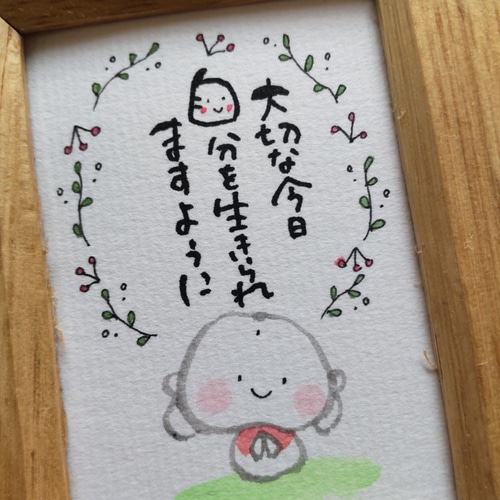 大切な今日
自分を生きられ
ますように